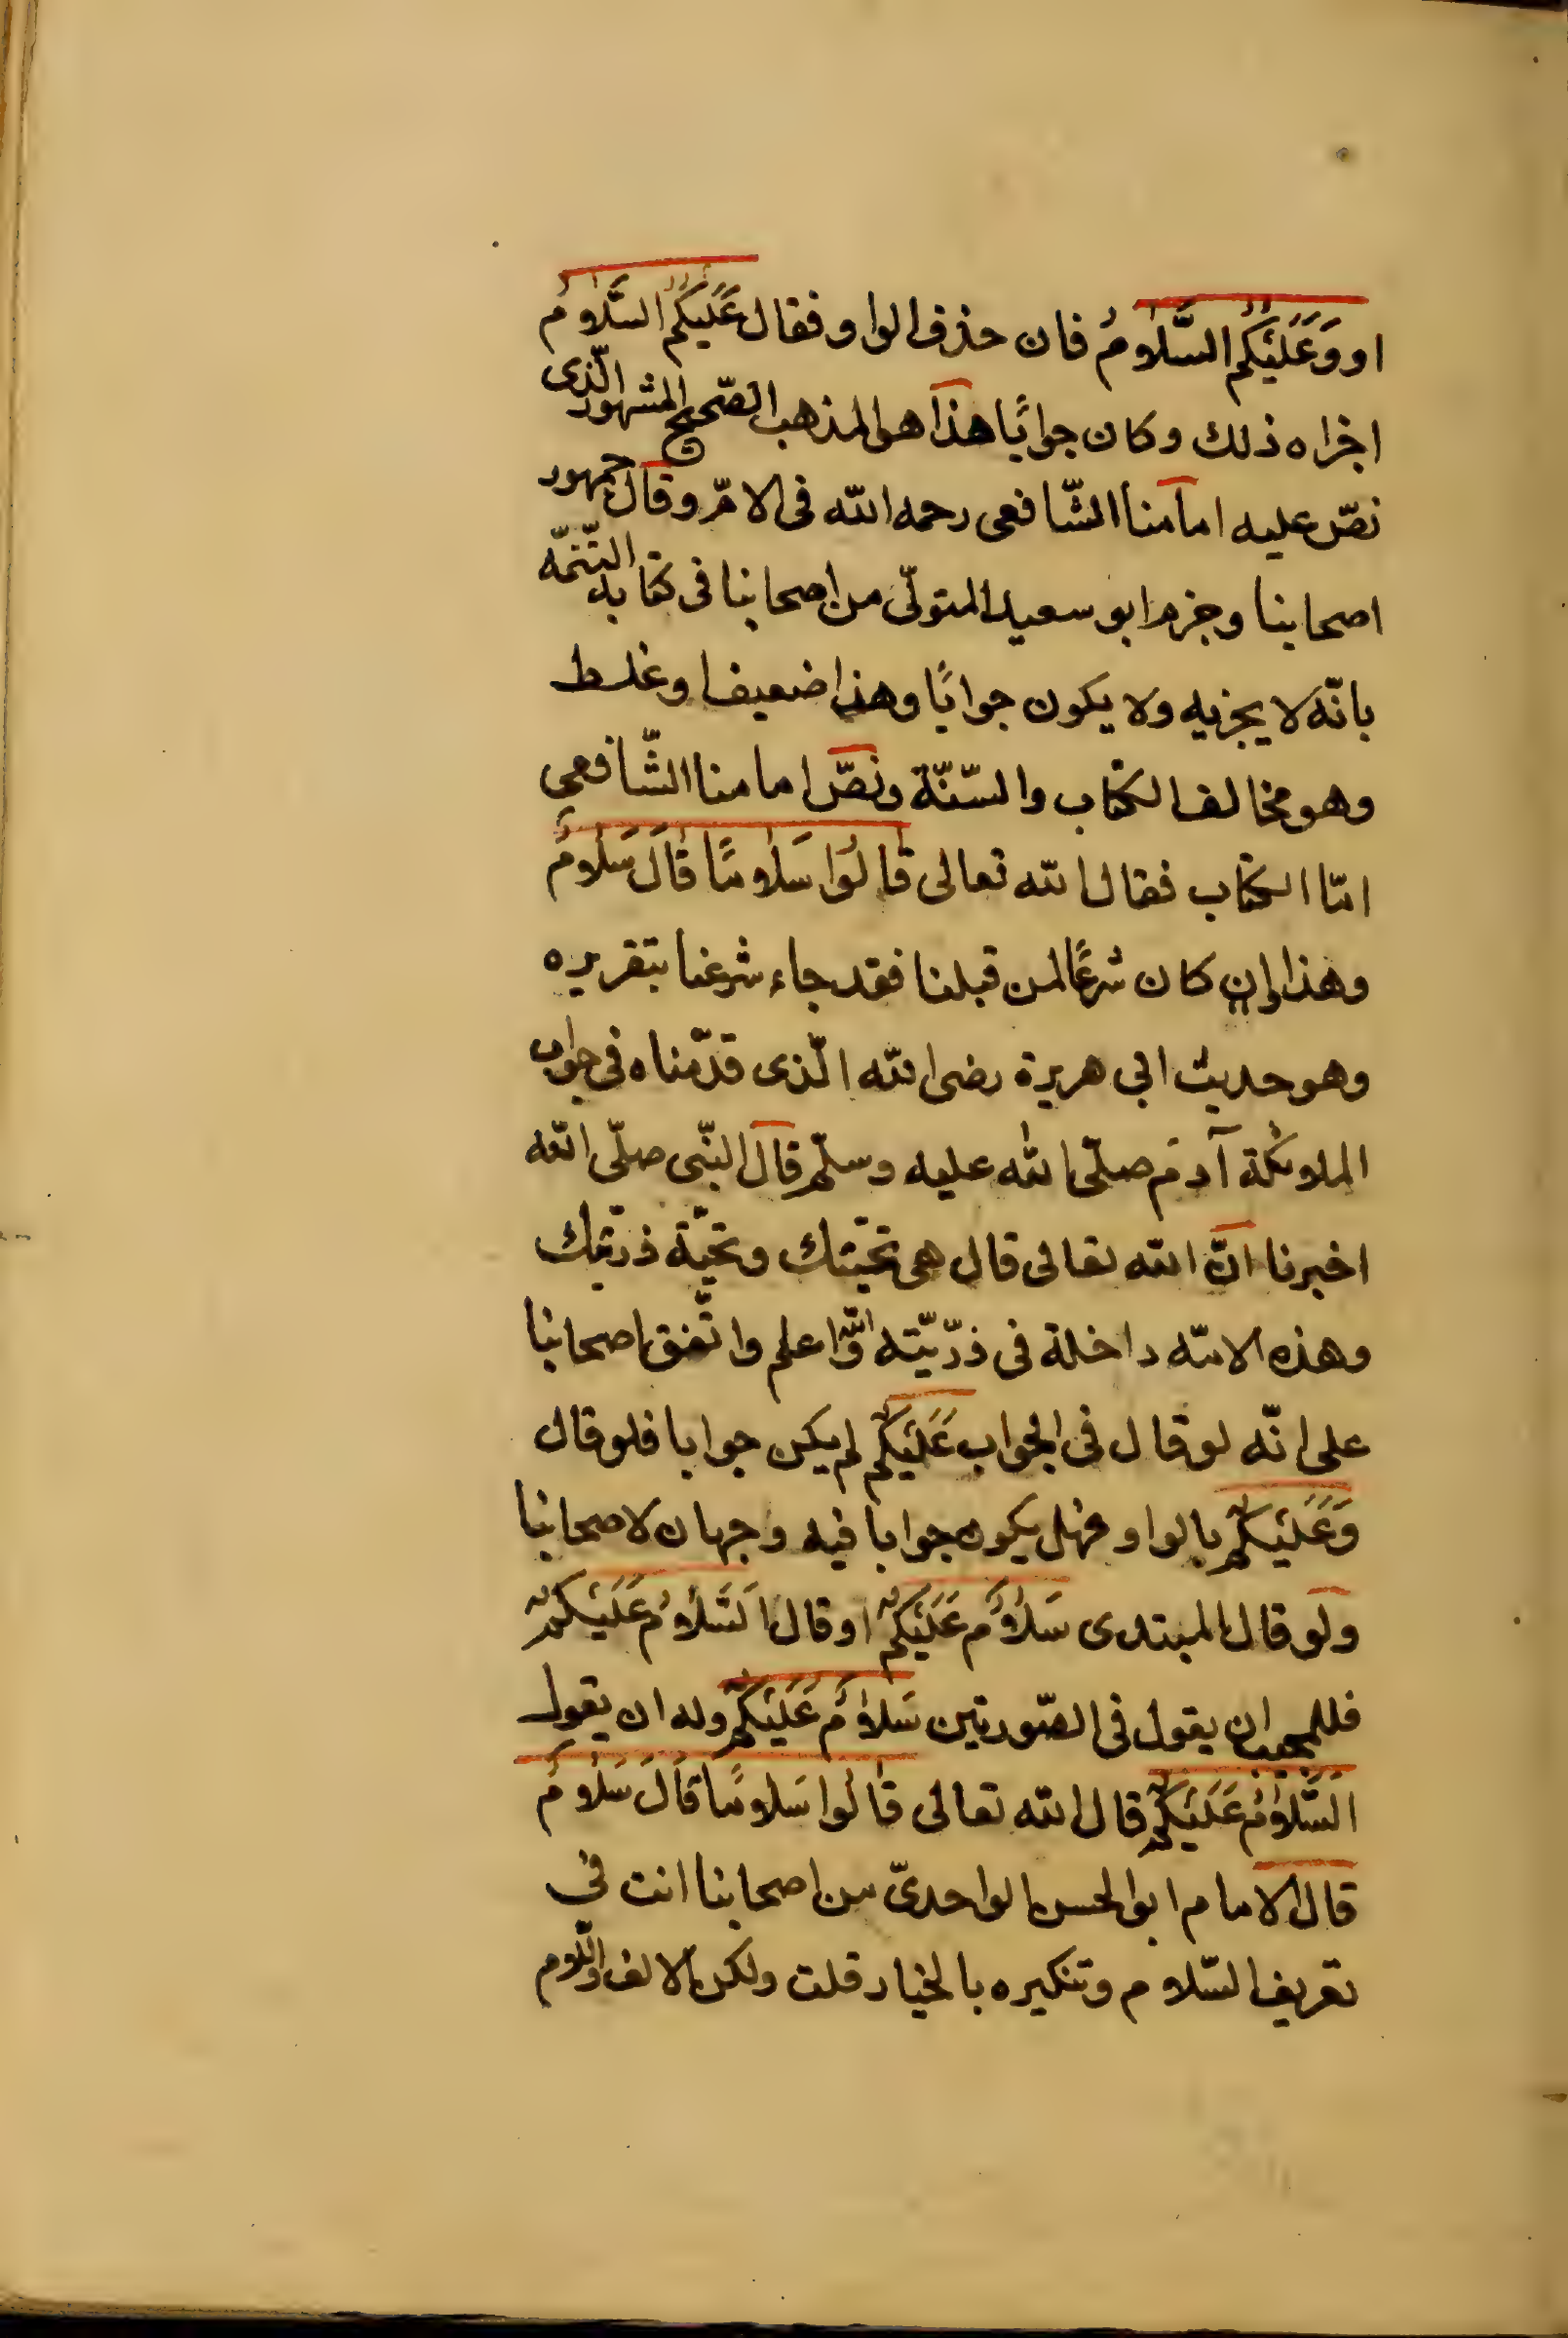 او وَعَلَيْكُمُ السَّلَامُ فان حذف الواو فقال عَلَيْكُمُ السَّلَامُ
اجزاه ذلك وكان جوابًا هذا هو المذهب الصّحيح المشهور الّذى
نصّ عليه امامنا الشّافعى رحمه الله فى الامّ وقال جمهور
اصحابنا وجزم ابو سعيد المتولّى من اصحابنا فى كتابه التّتمّه
بانّه لا يجزيه ولا يكون جوابًا وهذا ضعيف او غلط
وهو مخالف الكتاب والسّنّة ونصّ امامنا الشّافعى
امّا الكتاب فقال الله تعالى قَالُوا سَلَامًا قَالَ سَلَامٌ
وهذا وإن كان شرعًا لمن قبلنا فقد جاء شرعنا بتقريره
وهو حديث ابي هريرة رضى الله الّذى قدّمناه فى جواب
الملائكة آدم صلّى الله عليه وسلّم قال النّبى صلّى الله
اخبرنا انّ الله تعالى قال هى تحيّتك وتحيّة ذرّيّتك
وهذه الامّه داخلة فى ذرّيّته والله اعلم واتّفق اصحابنا
على انّه لو قال فى الجواب عَلَيْكُمْ لم يكن جوابا فلو قال
وَعَلَيْكُمْ بالواو فهل يكون جوابا فيه وجهان لاصحابنا
ولو قال المبتدى سَلَامٌ عَلَيْكُمْ او قال اَلسَّلَامُ عَلَيْكُمْ
فللمجيب ان يقول فى الصّورتين سَلَامٌ عَلَيْكُمْ وله ان يقول
اَلسَّلَامُ عَلَيْكُمْ قال الله تعالى قَالُوا سَلَامًا قَالَ سَلَامٌ
قال الامام ابو الحسن الواحدىّ من اصحابنا انت فى
تعريف السّلام وتنكيره بالخيار قلت ولكن الالف واللّام